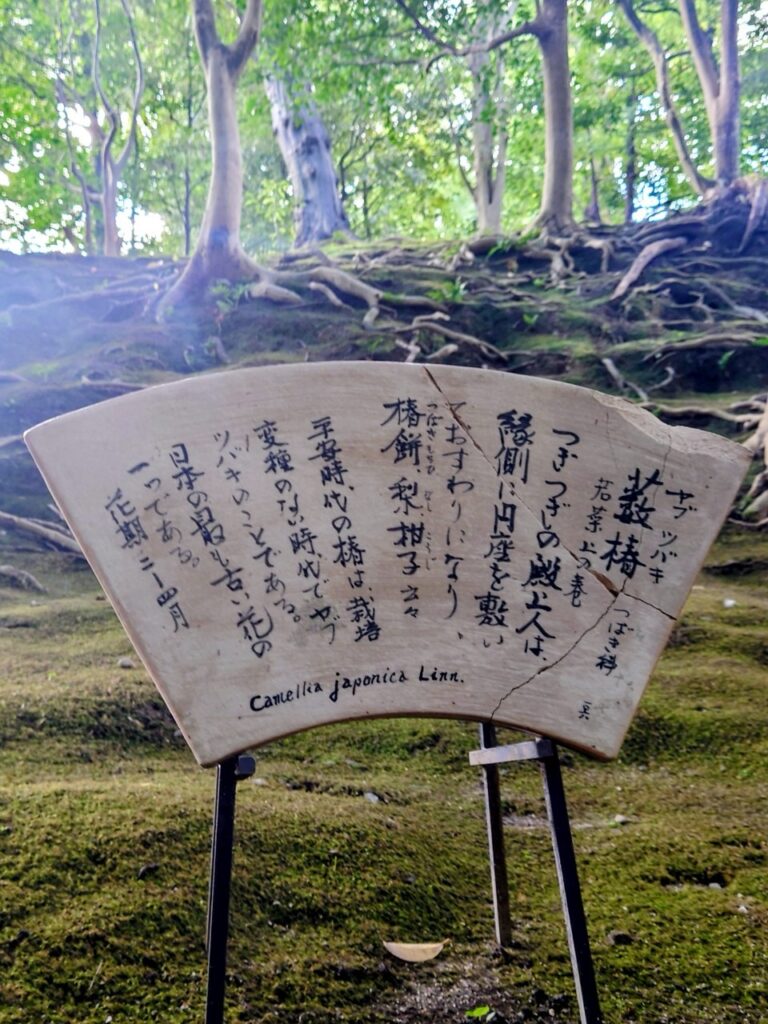 ヤブ ツバキ
藪椿 つばき科
若菜上の巻
つぎつぎの殿上人は、
縁側に円座を敷い
ておすわりになり、
つばきもちひ なし こうじ
椿餅 梨 柑子 云々
平安時代の椿は、栽培
変種のない時代でヤブ
ツバキのことである。
日本の最も古い花の
一つである。
花期 二ー四月
Camellia japonica Linn.